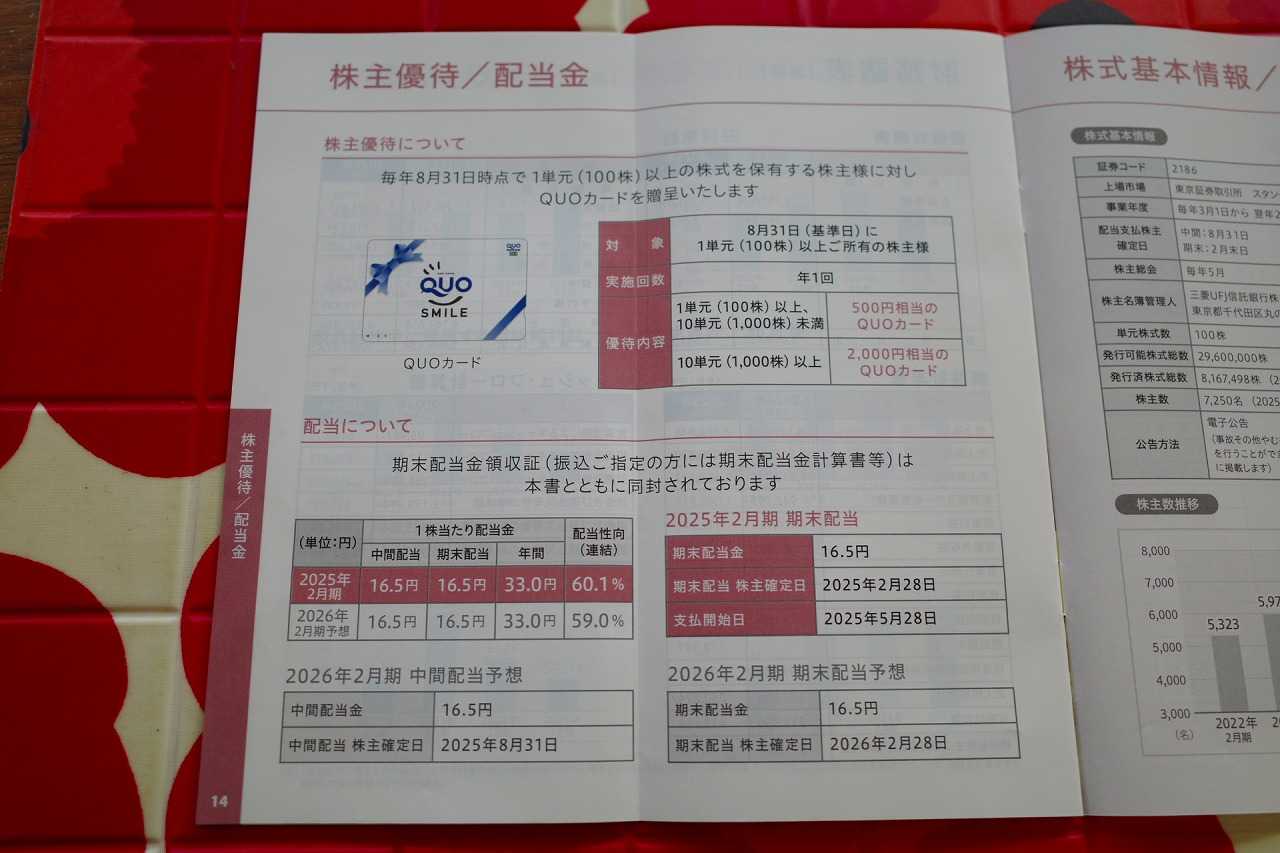 株主優待／配当金
株主優待について
毎年8月31日時点で1単元（100株）以上の株式を保有する株主様に対し
QUOカードを贈呈いたします
QUO
SMILE
QUOカード
対 象
8月31日（基準日）に
1単元（100株）以上ご所有の株主様
実施回数
年1回
優待内容
1単元（100株）以上、
10単元（1,000株）未満
500円相当の
QUOカード
10単元（1,000株）以上
2,000円相当の
QUOカード
配当について
期末配当金領収証（振込ご指定の方には期末配当金計算書等）は
本書とともに同封されております
（単位：円）
1株当たり配当金
配当性向
（連結）
中間配当
期末配当
年間
2025年
2月期
16.5円
16.5円
33.0円
60.1%
2026年
2月期予想
16.5円
16.5円
33.0円
59.0%
2025年2月期 期末配当
期末配当金
16.5円
期末配当 株主確定日
2025年2月28日
支払開始日
2025年5月28日
2026年2月期 中間配当予想
中間配当金
16.5円
中間配当 株主確定日
2025年8月31日
2026年2月期 期末配当予想
期末配当金
16.5円
期末配当 株主確定日
2026年2月28日
株主優待／配当金
14
株式基本情報／
株式基本情報
証券コード
2186
上場市場
東京証券取引所 スタン
事業年度
毎年3月1日から 翌年2
配当支払株主
確定日
中間：8月31日
期末：2月末日
株主総会
毎年5月
株主名簿管理人
三菱UFJ信託銀行株
東京都千代田区丸の
単元株式数
100株
発行可能株式総数
29,600,000株
発行済株式総数
8,167,498株（2
株主数
7,250名（2025
公告方法
電子公告
（事故その他やむ
を行うことがで
に掲載します）
株主数推移
8,000
7,000
6,000
5,000
4,000
3,000
（名）
5,323
5,97
2022年
2月期